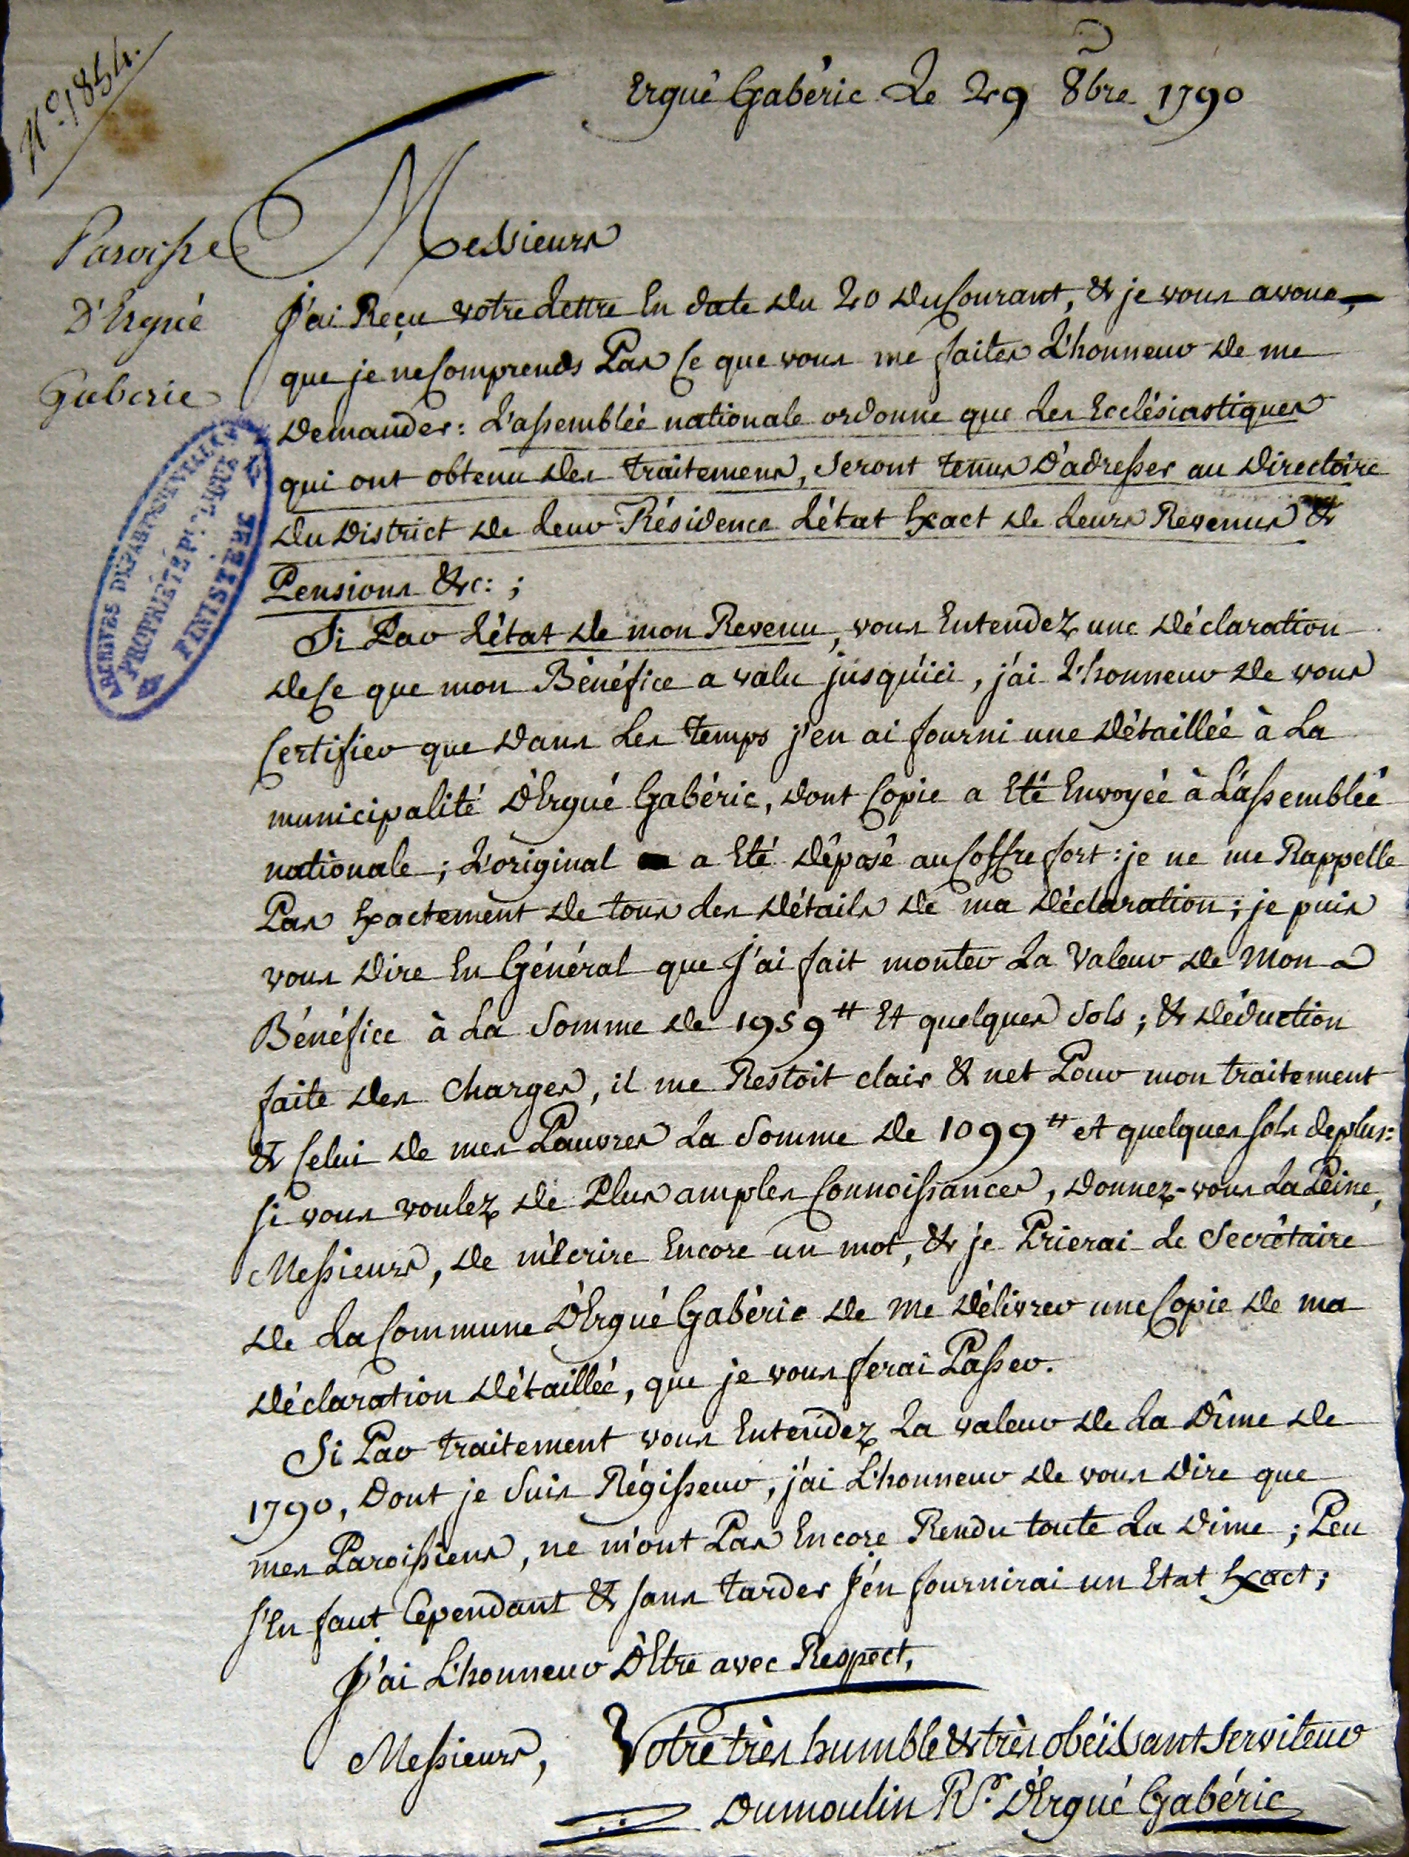 N.º 1854.
Ergué Gabéric Le 29 8bre 1790
Paroisse
D'Ergué
Gaberic
Messieurs
J'ai Reçu votre Lettre En date du 20 du Courant, & je vous avoue,
que je ne Comprends Pas Ce que vous me faites L'honneur de me
demander: L'assemblée nationale ordonne que Les Ecclésiastiques
qui ont obtenu des traitemens, seront tenus d'adresser au Directoire
du District de Leur Résidence L'état Exact de Leurs Revenus &
Pensions &c: ;
Si Par L'état de mon Revenu, vous Entendez une déclaration
de Ce que mon Bénéfice a valu jusqu'ici, j'ai L'honneur de vous
Certifier que dans Les temps j'en ai fourni une détaillée à La
municipalité d'Ergué Gabéric, dont Copie a Eté Envoyée à L'assemblée
nationale; L'original a Eté déposé au Coffre fort: je ne me Rappelle
Pas Exactement de tous Les détails de ma déclaration; je puis
vous dire En Général que j'ai fait monter La Valeur de mon
Bénéfice à La Somme de 1959 ₶ Et quelques sols; & déduction
faite des Charges, il me Restoit clair & net Pour mon traitement
& Celui de mes Pauvres La Somme de 1099 ₶ et quelques sols de plus:
si vous voulez de Plus amples Connoissances, donnez-vous La Peine,
Messieurs, de m'écrire Encore un mot, & je Prierai Le Secrétaire
de La Commune d'Ergué Gabéric de me délivrer une Copie de ma
déclaration détaillée, que je vous ferai Passer.
Si Par traitement vous Entendez La valeur de La Dîme de
1790, Dont je suis Régisseur, j'ai L'honneur de vous dire que
mes Paroissiens, ne m'ont Pas Encore Rendu toute La dime; Peu
s'En faut Cependant & sans tarder j'en fournirai un Etat Exact;
J'ai L'honneur d'Etre avec Respect,
Messieurs, Votre très humble & très obéissant serviteur
Dumoulin Rr. d'Ergué Gabéric
ARCHIVES DÉPARTEMENTALES
PROPRIÉTÉ PUBLIQUE
FINISTÈRE